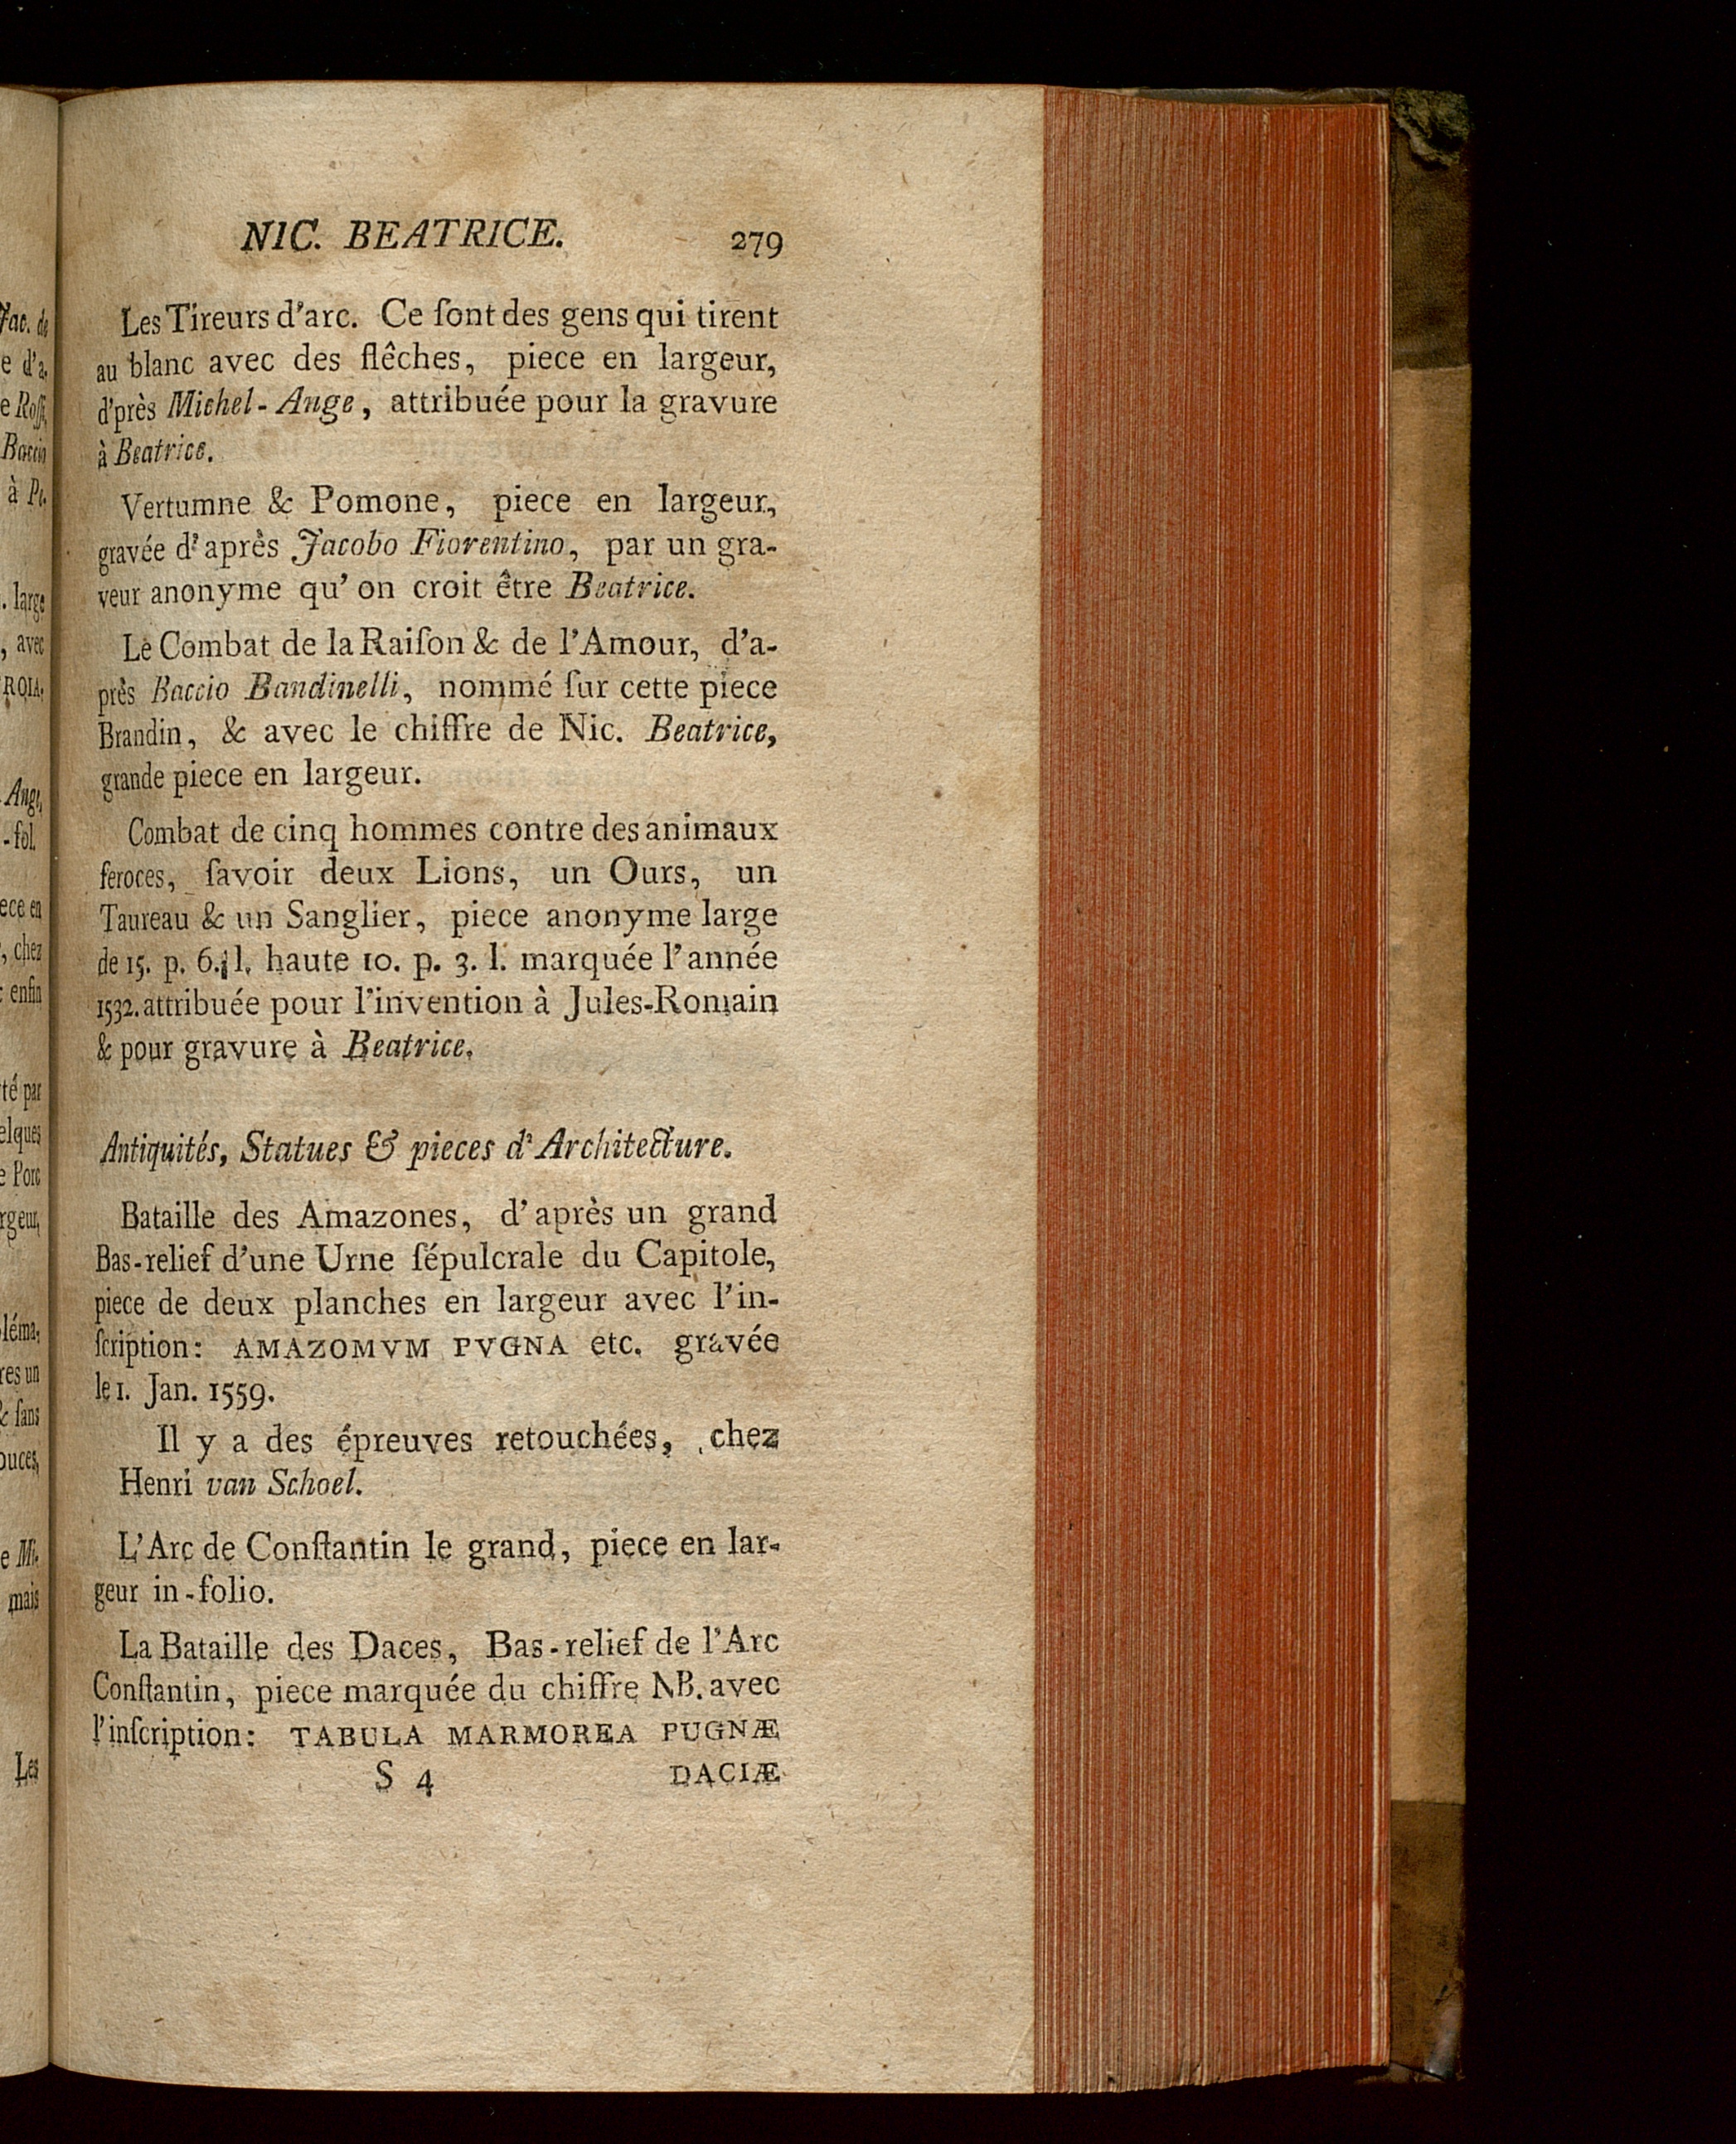 NIC. BEATRICE. 279
Les Tireurs d'arc. Ce ſont des gens qui tirent
au blanc avec des flêches, piece en largeur,
d'près Michel-Ange, attribuée pour la gravure
à Beatrice.
Vertumne & Pomone, piece en largeur,
gravée d'après Jacobo Fiorentino, par un gra-
veur anonyme qu'on croit être Beatrice.
Le Combat de la Raiſon & de l'Amour, d'a-
près Baccio Bandinelli, nommé ſur cette piece
Brandin, & avec le chiffre de Nic. Beatrice,
grande piece en largeur.
Combat de cinq hommes contre des animaux
feroces, ſavoir deux Lions, un Ours, un
Taureau & un Sanglier, piece anonyme large
de 15. p. 6. l. haute 10. p. 3. l. marquée l'année
1532. attribuée pour l'invention à Jules-Romain
& pour gravure à Beatrice.
Antiquités, Statues & pieces d'Architecture.
Bataille des Amazones, d'après un grand
Bas-relief d'une Urne ſépulcrale du Capitole,
piece de deux planches en largeur avec l'in-
ſcription: AMAZOMVM PVGNA etc. gravée
le 1. Jan. 1559.
Il y a des épreuves retouchées, chez
Henri van Schoel.
L'Arc de Conſtantin le grand, piece en lar-
geur in-folio.
La Bataille des Daces, Bas-relief de l'Arc
Conſtantin, piece marquée du chiffre NB. avec
l'inſcription: TABULA MARMOREA PUGNÆ
S 4 DACIÆ
Jac. de
e d'a-
e Roſſi,
Baccio
à Pe.
. large
, avec
ROIA.
Ange,
-fol.
ece en
, chez
: enfin
té par
elques
e Porc
rgeur,
léma-
res un
& ſans
ouces,
e Mi-
mais
Les